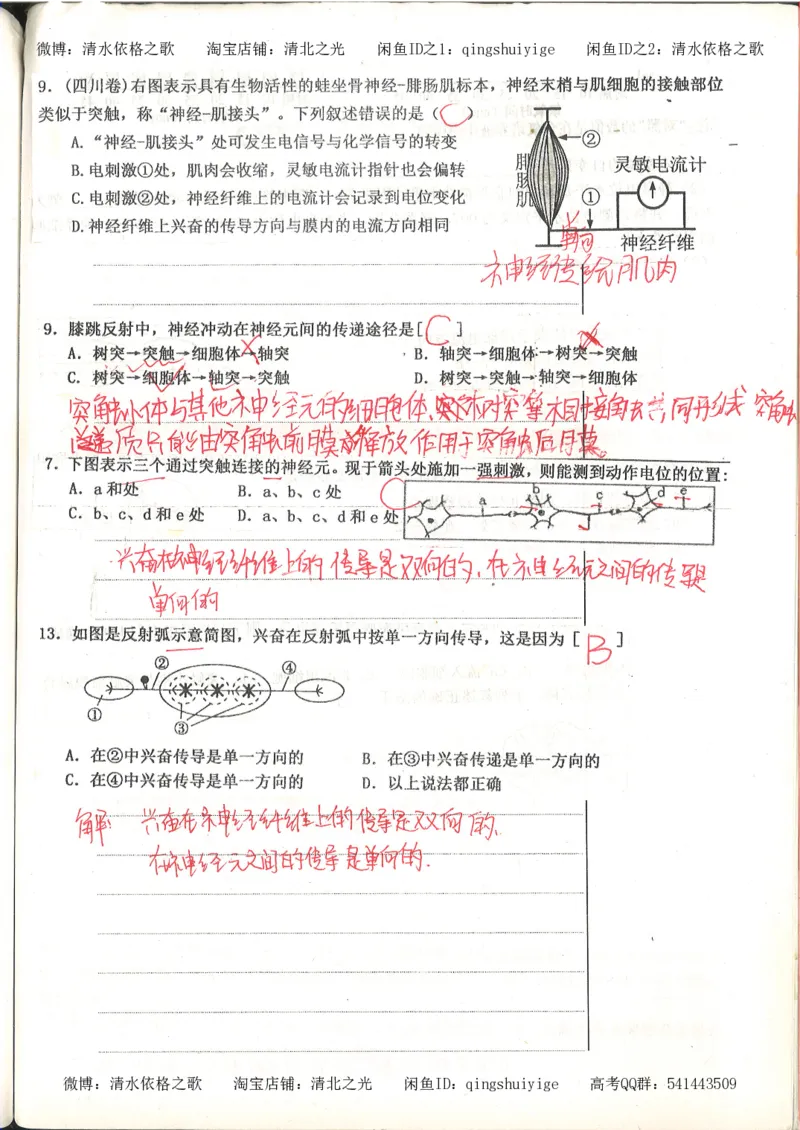 微博：清水依格之歌 淘宝店铺：清北之光 闲鱼ID之1：qingshuiyige 闲鱼ID之2：清水依格之歌
9．(四川卷)右图表示具有生物活性的蛙坐骨神经-腓肠肌标本，神经末梢与肌细胞的接触部位
类似于突触，称“神经-肌接头”。下列叙述错误的是（ C ）
A.“神经-肌接头”处可发生电信号与化学信号的转变
B.电刺激①处，肌肉会收缩，灵敏电流计指针也会偏转
C.电刺激②处，神经纤维上的电流计会记录到电位变化
D.神经纤维上兴奋的传导方向与膜内的电流方向相同
腓肠肌
②
灵敏电流计
①
神经纤维
单向
神经传给肌肉
9．膝跳反射中，神经冲动在神经元间的传递途径是[ C ]
A．树突→突触→细胞体→轴突 B．轴突→细胞体→树突→突触
C．树突→细胞体→轴突→突触 D．树突→突触→轴突→细胞体
突触小体与其他神经元的细胞体、树突等相接触共同形成突触
递质只能由突触前膜释放作用于突触后膜。
7．下图表示三个通过突触连接的神经元。现于箭头处施加一强刺激，则能测到动作电位的位置：
A．a和处 B．a、b、c处 C
C．b、c、d和e处 D．a、b、c、d和e处
a b c d e
兴奋在神经纤维上的传导是双向的，在神经元之间的传递是
单向的
13．如图是反射弧示意简图，兴奋在反射弧中按单一方向传导，这是因为[ B ]
② ④
① ③
A．在②中兴奋传导是单一方向的 B．在③中兴奋传递是单一方向的
C．在④中兴奋传导是单一方向的 D．以上说法都正确
解：兴奋在神经纤维上的传导是双向的、
在神经元之间的传导是单向的.
微博：清水依格之歌 淘宝店铺：清北之光 闲鱼ID：qingshuiyige 高考QQ群：541443509